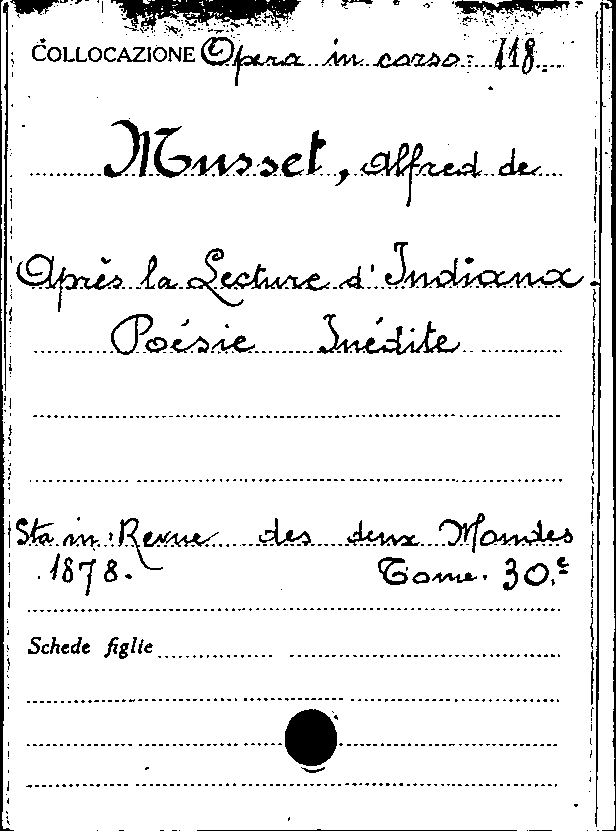 COLLOCAZIONE Opera in corso: 118.
Musset, Alfred de
Après la Lecture d'Indiana.
Poésie Inédite
Sta in: Revue des deux Mondes
1878. Tome. 30.e
Schede figlie